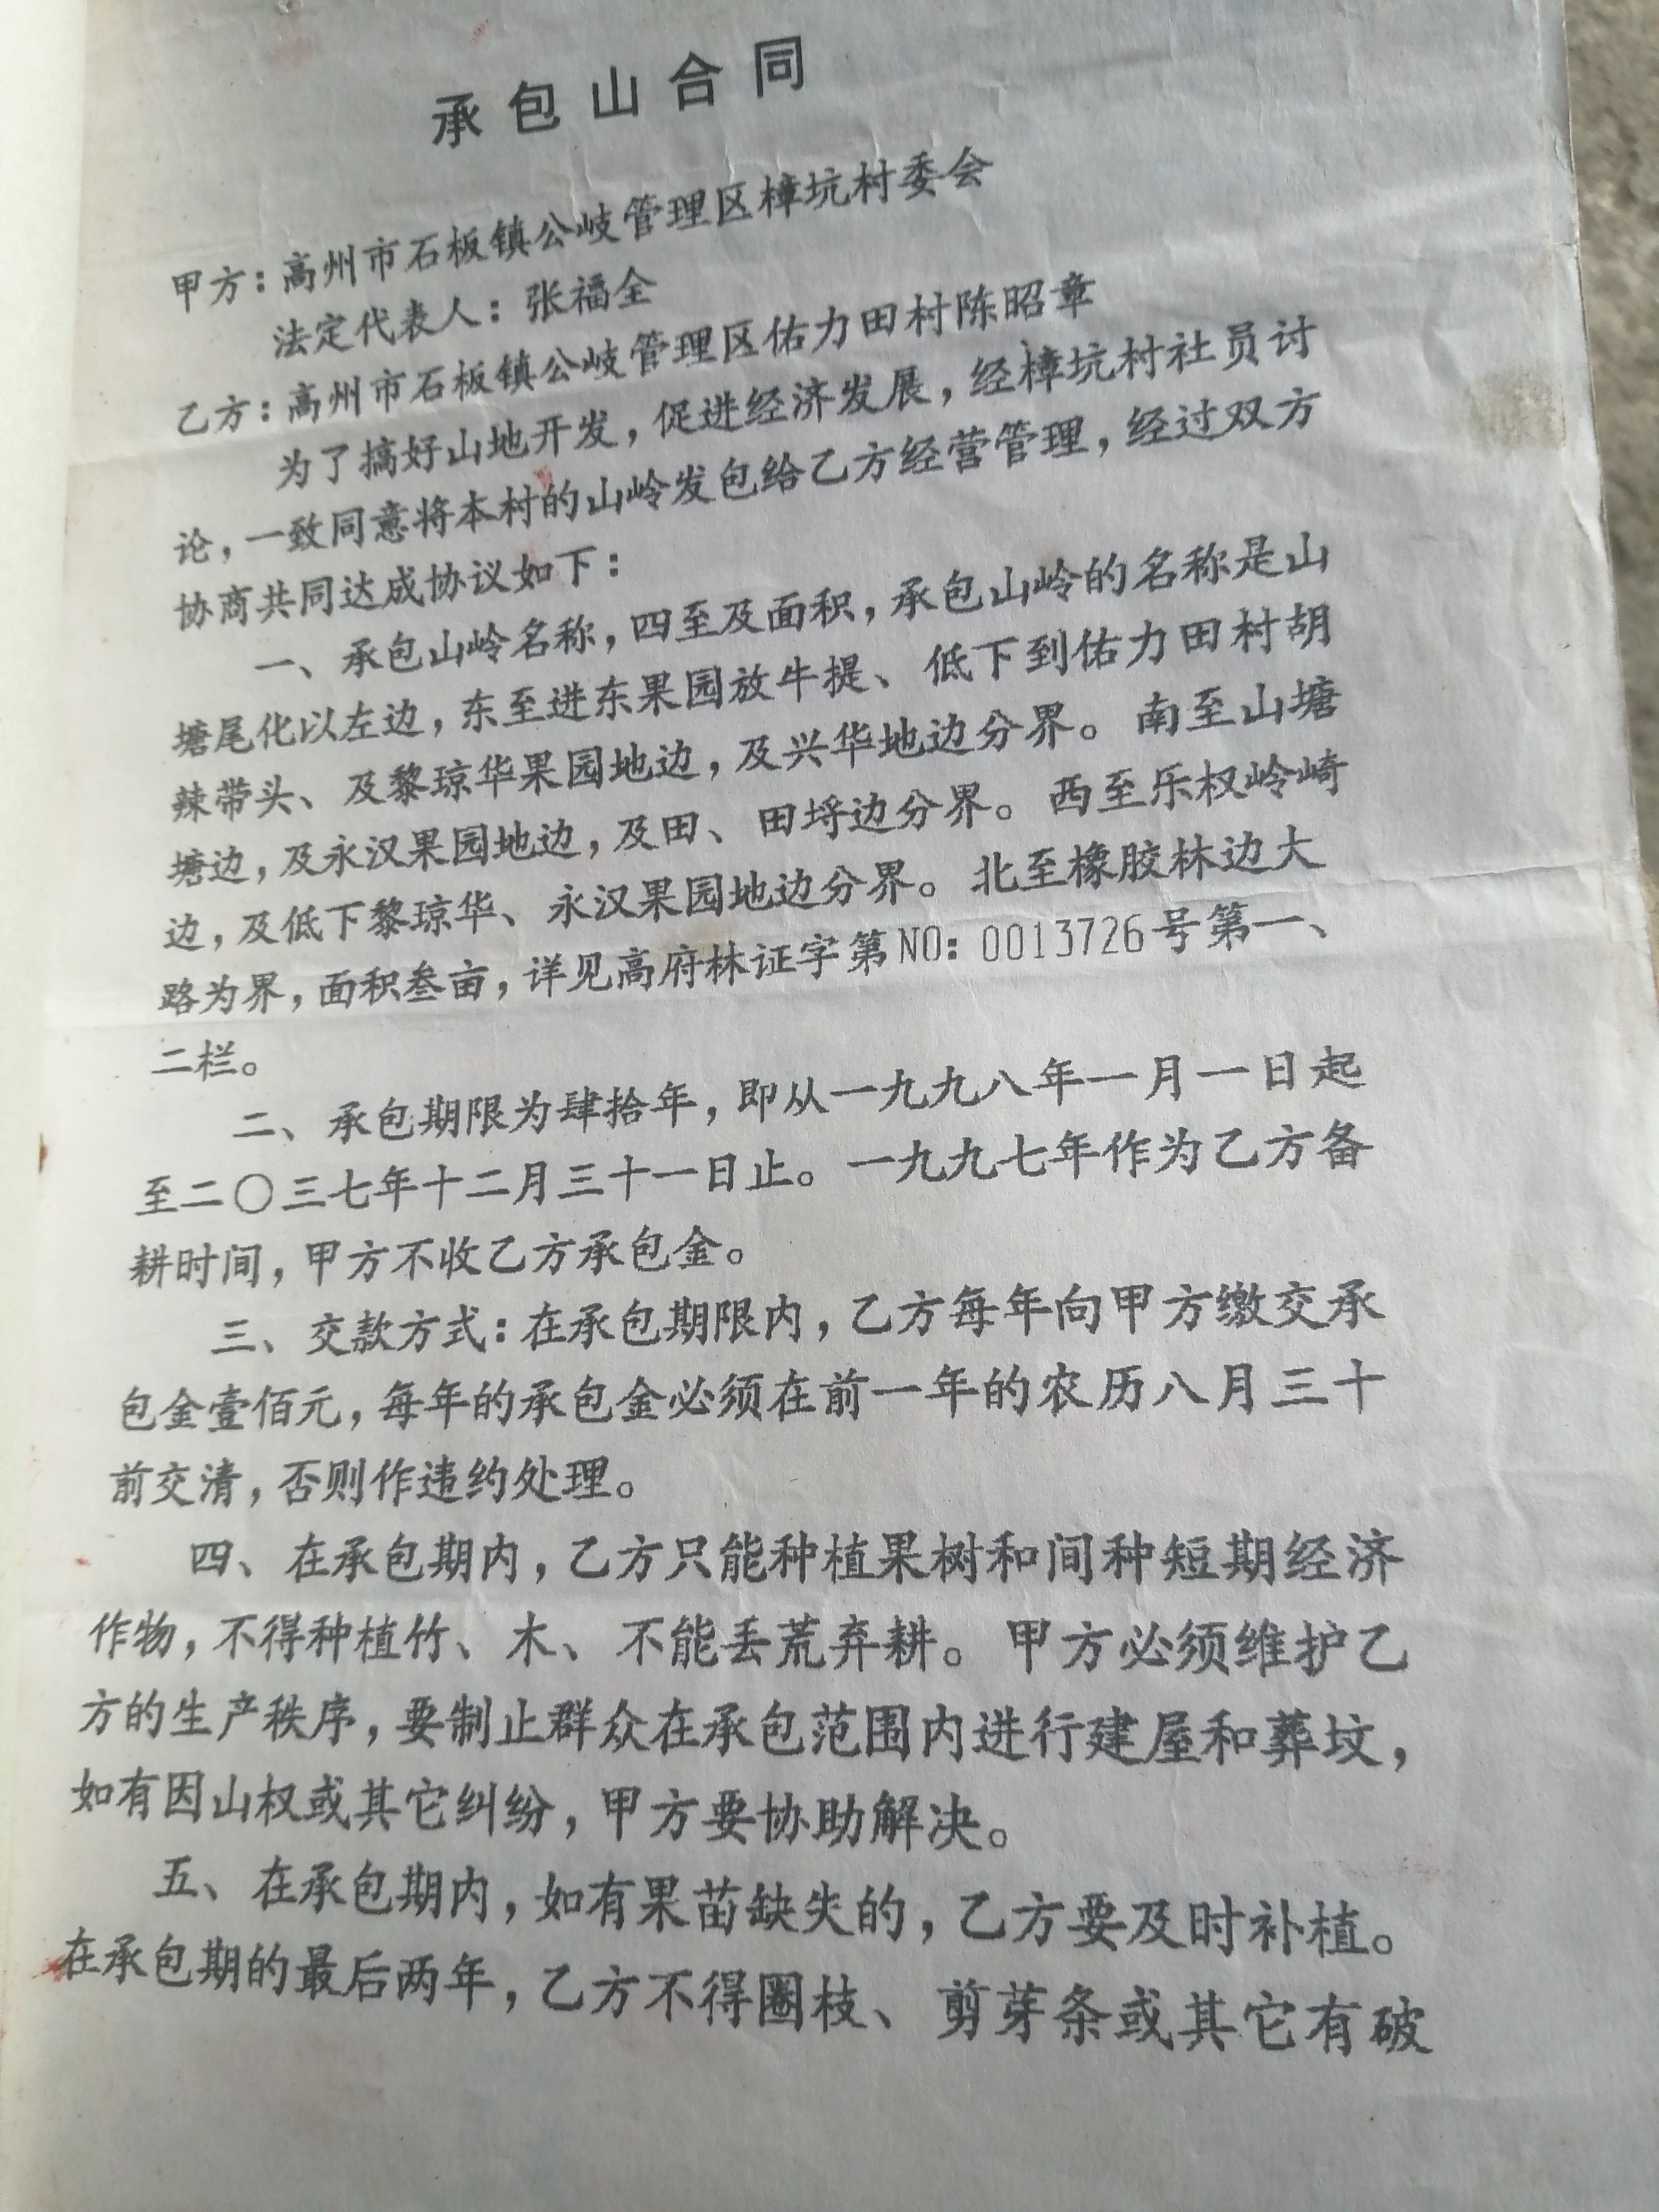 承包山合同
甲方：高州市石板镇公岐管理区樟坑村委会
法定代表人：张福全
乙方：高州市石板镇公岐管理区佑力田村陈昭章
为了搞好山地开发，促进经济发展，经樟坑村社员讨
论，一致同意将本村的山岭发包给乙方经营管理，经过双方
协商共同达成协议如下：
一、承包山岭名称，四至及面积，承包山岭的名称是山
塘尾化以左边，东至进东果园放牛提、低下到佑力田村胡
辣带头、及黎琼华果园地边，及兴华地边分界。南至山塘
塘边，及永汉果园地边，及田、田埒边分界。西至乐权岭崎
边，及低下黎琼华、永汉果园地边分界。北至橡胶林边大
路为界，面积叁亩，详见高府林证字第NO：0013726号第一、
二栏。
二、承包期限为肆拾年，即从一九九八年一月一日起
至二〇三七年十二月三十一日止。一九九七年作为乙方备
耕时间，甲方不收乙方承包金。
三、交款方式：在承包期限内，乙方每年向甲方缴交承
包金壹佰元，每年的承包金必须在前一年的农历八月三十
前交清，否则作违约处理。
四、在承包期内，乙方只能种植果树和间种短期经济
作物，不得种植竹、木、不能丢荒弃耕。甲方必须维护乙
方的生产秩序，要制止群众在承包范围内进行建屋和葬坟，
如有因山权或其它纠纷，甲方要协助解决。
五、在承包期内，如有果苗缺失的，乙方要及时补植。
在承包期的最后两年，乙方不得圈枝、剪芽条或其它有破